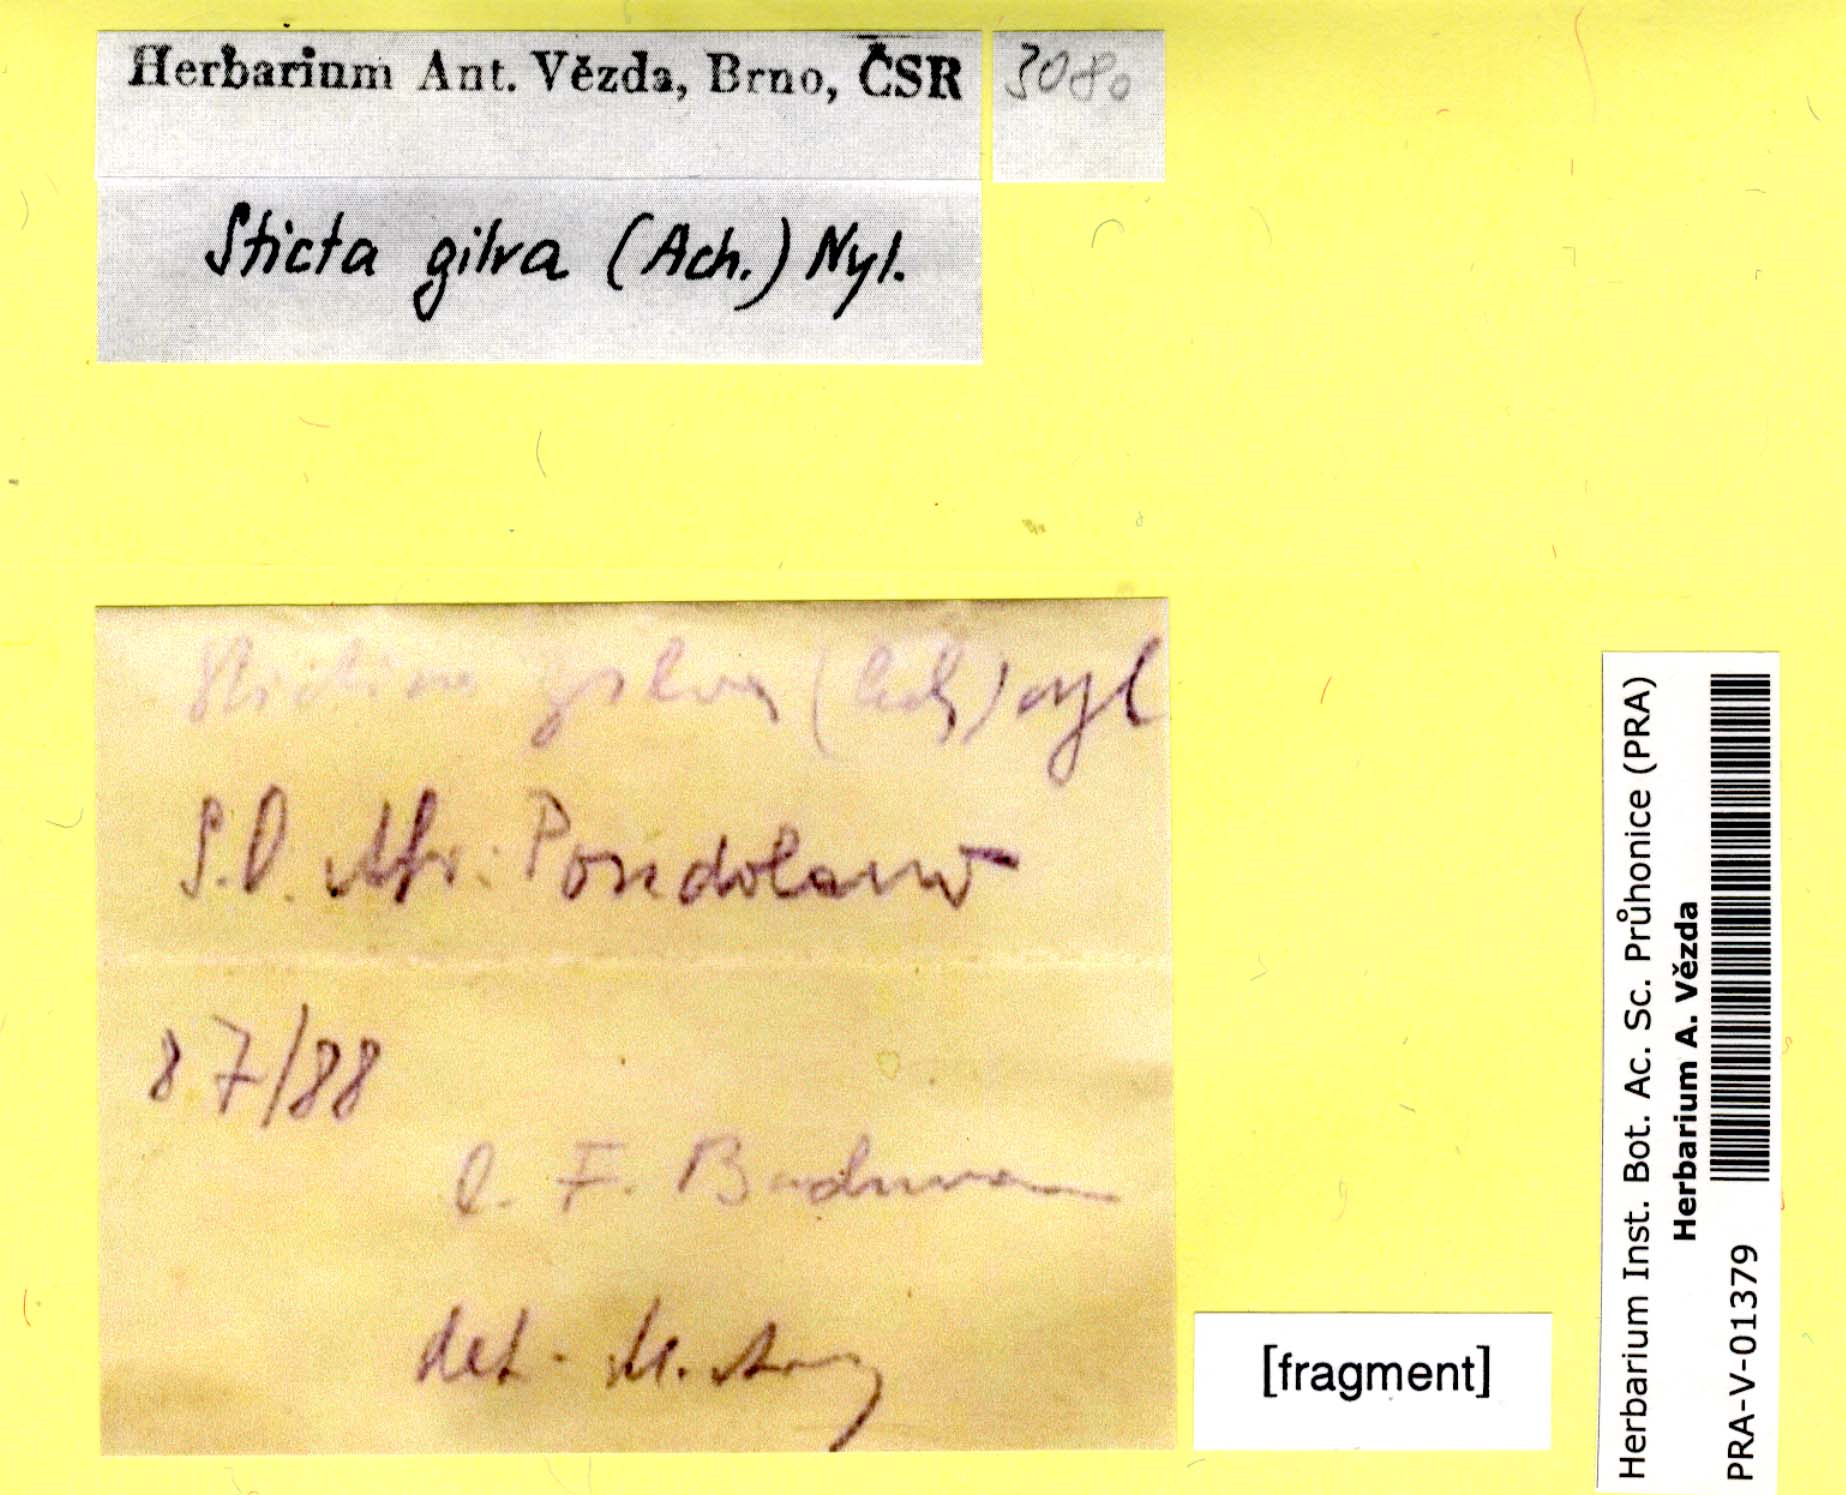 Herbarium Ant. Vězda, Brno, ČSR
3080
Sticta gilva (Ach.) Nyl.
Stictina gilva (Ach) nyl
S.O. Afr: Pondoland
87/88
F.
det. M. Arg
[fragment]
Herbarium Inst. Bot. Ac. Sc. Průhonice (PRA)
Herbarium A. Vězda
PRA-V-01379